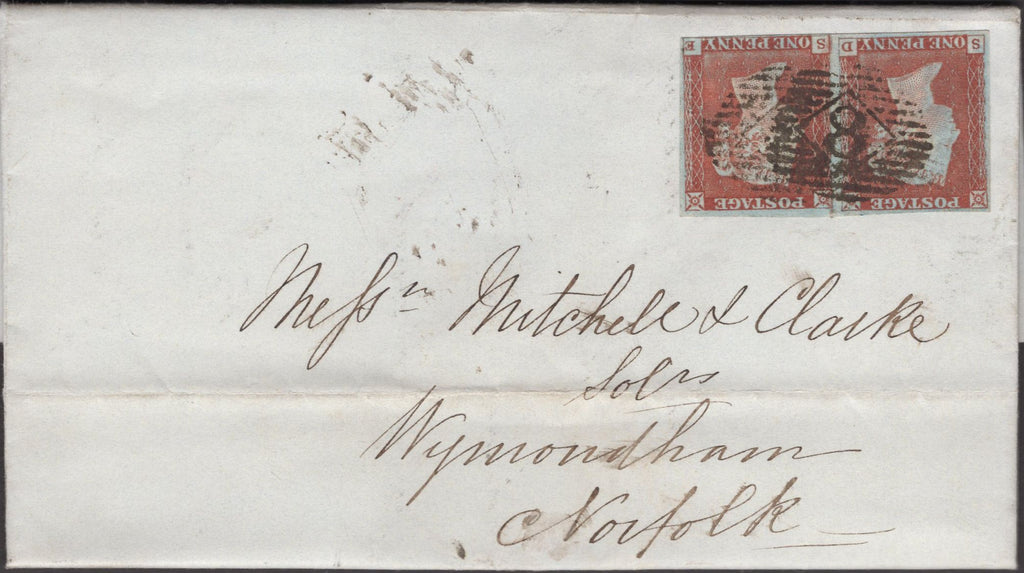 POSTAGE POSTAGE
S D S E
ONE PENNY ONE PENNY
8
Messrs Mitchell & Clarke
Solrs
Wymondham
Norfolk